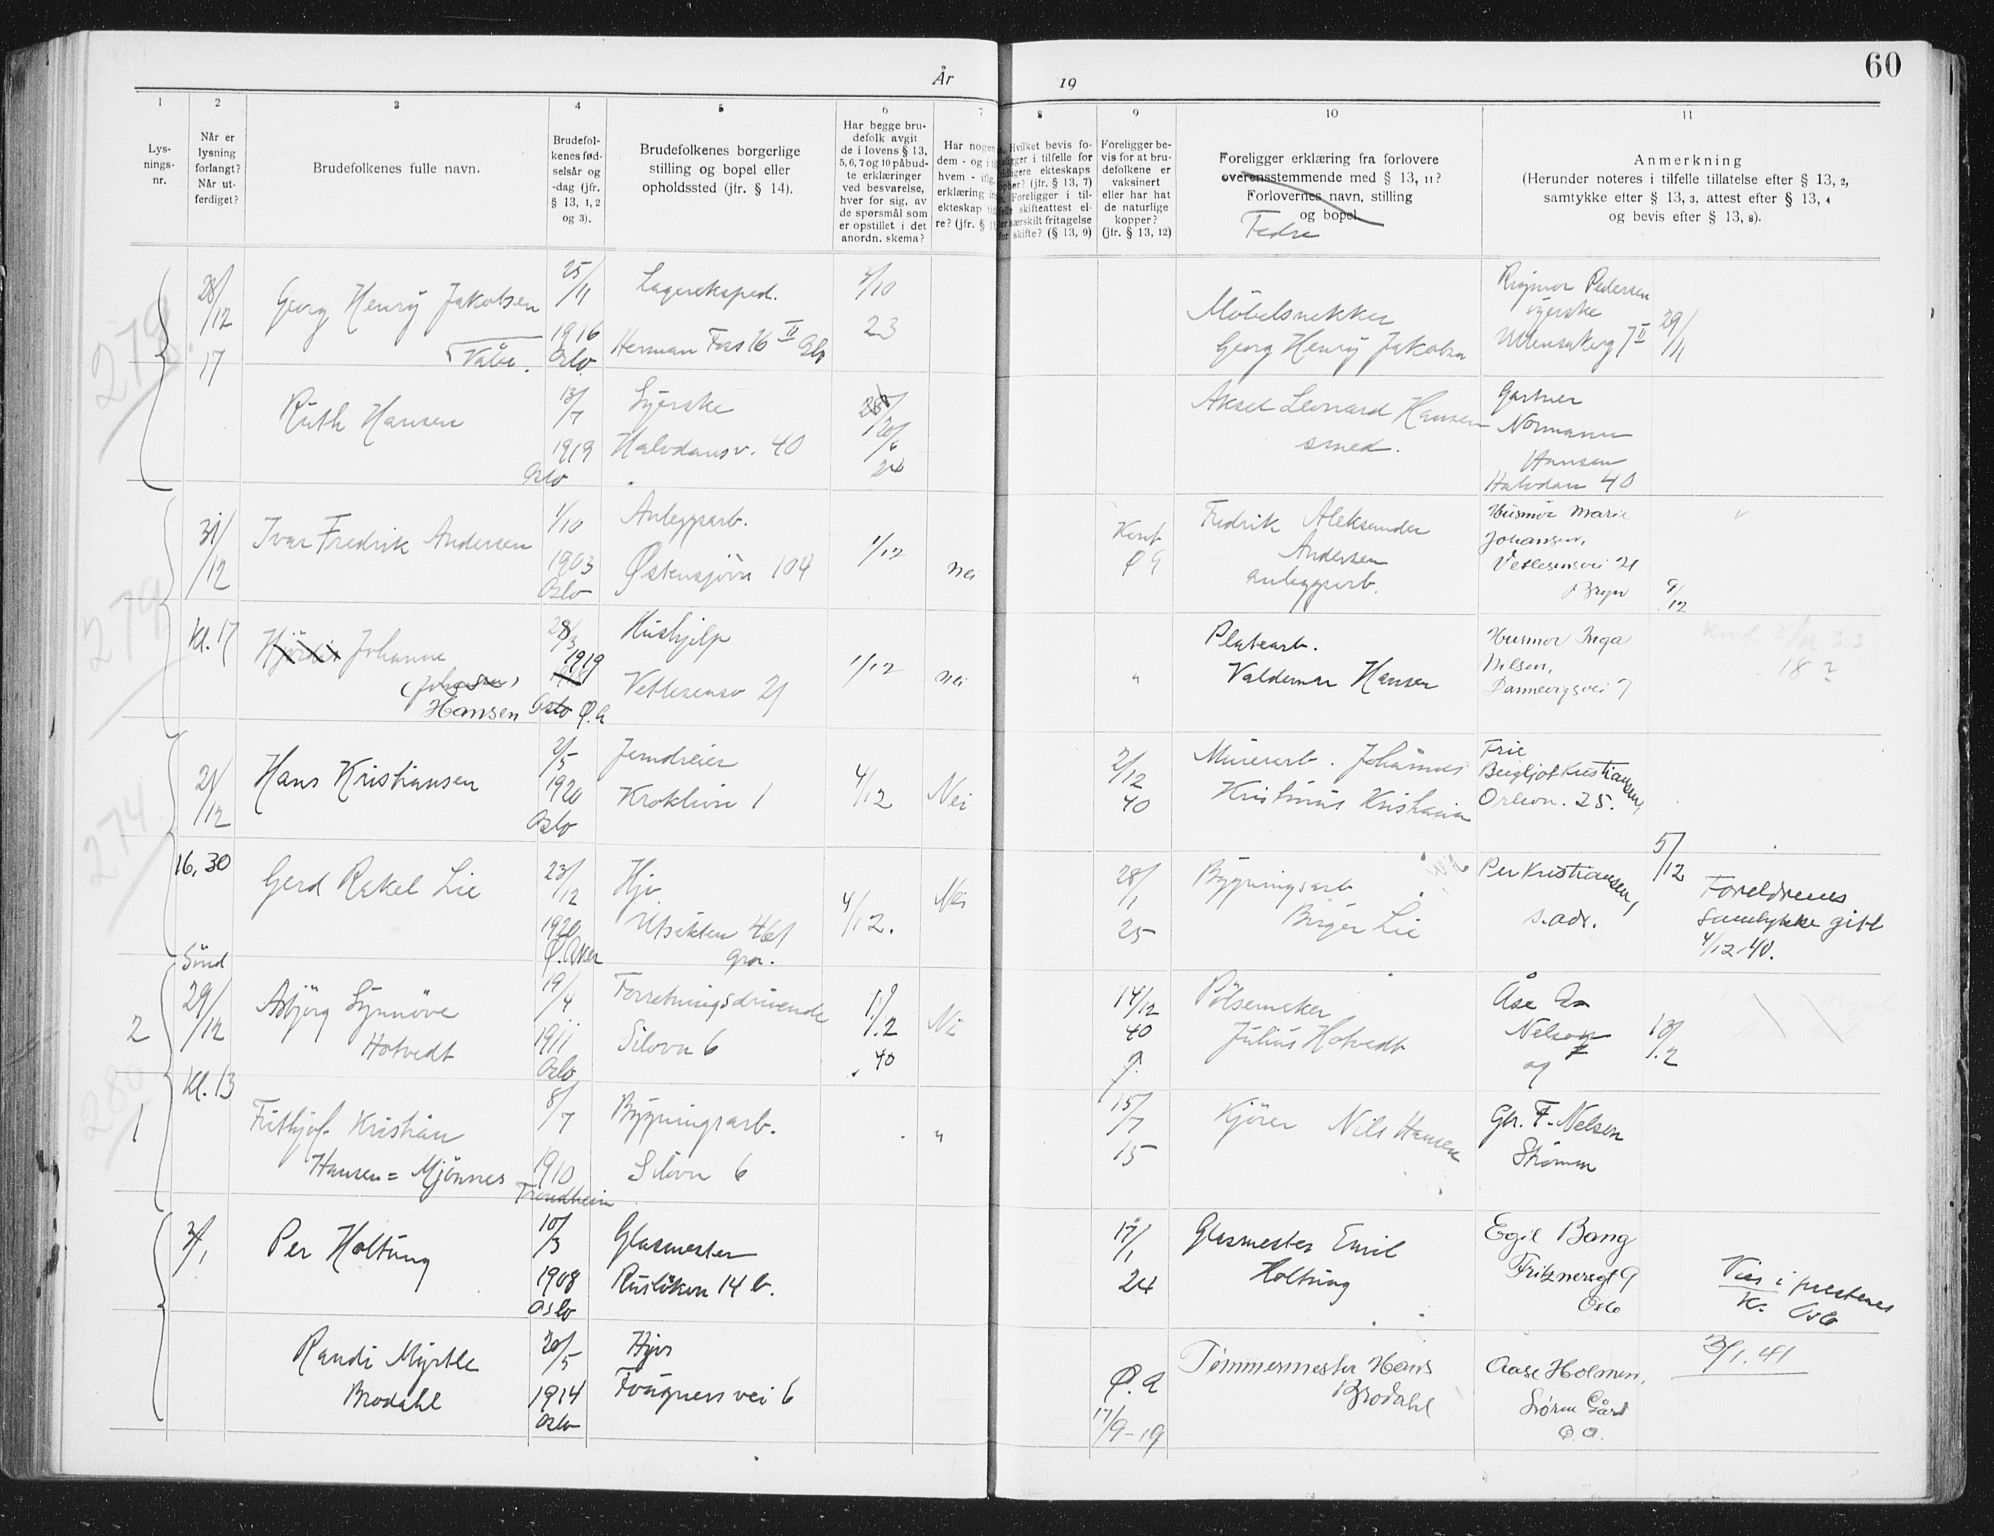 60
År 19
1 2 3 4 5 6 7 8 9 10 11
Lys-
nings-
nr.
Når er
lysning
forlangt?
Når ut-
ferdiget?
Brudefolkenes fulle navn.
Brudefol-
kenes fød-
selsår og
-dag (jfr.
§ 13, 1, 2
og 3).
Brudefolkenes borgerlige
stilling og bopel eller
opholdssted (jfr. § 14).
Har begge bru-
defolk avgit
de i lovens § 13,
5, 6, 7 og 10 påbud-
te erklæringer
ved besvarelse,
hver for sig, av
de spørsmål som
er opstillet i det
anordn. skema?
Har nogen
dem - og i
hvem - ifl.
erklæring in
ekteskap tid
re? (jfr. § 1
Hvilket bevis fo-
ligger i tilfelle for
ligere ekteskaps
pher? (jfr. § 13, 7)
Foreligger i til-
felle skifteattest el-
særskilt fritagelse
for skifte? (§ 13, 9)
Foreligger be-
vis for at bru-
defolkene er
vaksinert
eller har hat
de naturlige
kopper?
(jfr. § 13, 12)
Foreligger erklæring fra forlovere
overensstemmende med § 13, 11?
Forlovernes navn, stilling
og bopel
Fedre
Anmerkning
(Herunder noteres i tilfelle tillatelse efter § 13, 2,
samtykke efter § 13, 3, attest efter § 13, 4
og bevis efter § 13, 8).
278.
28/12
17
Georg Henry Jakobsen
Våbe.
25/11
1916
Oslo.
Lagereksped.
Herman Foss 16 II Oslo
2/10
23
Møbelsnekker
Georg Henry Jakobsen
Rigmor Pedersen
syerske
7 II
29/11
Ruth Hansen
13/7
1919
Oslo
Syerske
Halvdansv. 40
20/6
24
Aksel Leonard Hansen
smed.
Gartner
Normann
Hansen
Halvdan 40
279
31/12
Ivar Fredrik Andersen
1/10
1903
Oslo
Anleggsarb.
Østensjøvn 104
1/12
nei
Konf
Ø A
Fredrik Aleksander
Andersen
anleggsarb.
Husmor Marie
Johansen,
Vetlesensvei 21
Bryn
9/12
Kl. 17
Hjördis Johanne
(Johansen)
Hansen
28/3
1919
Oslo Ø.A
Hushjelp
Vetlesensv 21
1/12
nei
"
Platearb.
Valdemar Hansen
Husmor Inga
Nilsen,
Dannevigsvei 7
18?
274.
21/12
Hans Kristiansen
2/5
1920
Oslo
Jerndreier
Krokliven 1
4/12
Nei
2/12
40
Murerarb. Johannes
Kristinius Kristiansen
Frie
Bergljot Kristiansen,
25.
5/12
16,30
Gerd Rakel Lie
23/12
1920
Ø. Aker
Hjv.
Utsikten 461
Gror.
4/12.
Nei
28/1
25
Bygningsarb
Birger Lie
Per Kristiansen,
s. adr.
Foreldrenes
samtykke gitt
4/12 40.
280
Sünd
2
29/12
Asbjørg Synnöve
Hotvedt
19/4
1911
Oslo
Forretningsdrivende
Silovn 6
1.2
40
Nei
14/12
40
Pölsemaker
Julius Hotvedt
Åse
Nelson
og
13/1.2
Kl. 13
1
Frithjof Kristian
Hansen = Mjönnes
8/7
1910
Trondheim
Bygningsarb.
Silovn 6
"
15/7
15
Kjörer Nils Hansen
Gbr. F. Nelson
Strömmen
3/1
Per Holtung
10/3
1908
Oslo
Glasmester
Rusløkvn 14 b.
17/1
24
Glasmester Emil
Holtung
Egil Bang
Fritznersgt 9
Oslo
Vies i prestenes
k. Oslo
Randi Myrtle
Brodahl
20/5
1914
Oslo
Hjv
Fougners vei 6
Ø. A
17/9-19
Tømmermester Hans
Brodahl
Aase Holmen,
Sörm Gård
Ø. A.
3/1.41